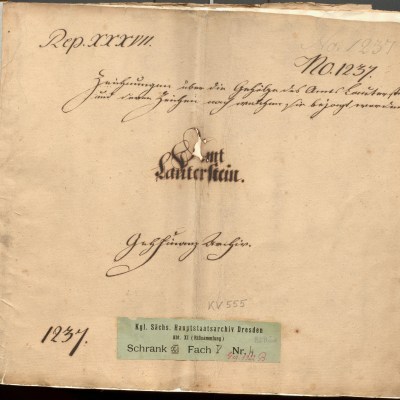 Rep. XXXVII.
No. 1237
No. 1237.
Zeichnungen über die Gehölze des Amts Lauterst
und deren Zeichen nach welchen sie bejagt werden
Amt
Lauterstein.
Geh. Finanz Archiv.
XV 555
1237.
Kgl. Sächs. Hauptstaatsarchiv Dresden
Abt. XI (Rißsammlung)
Schrank Fach Nr.